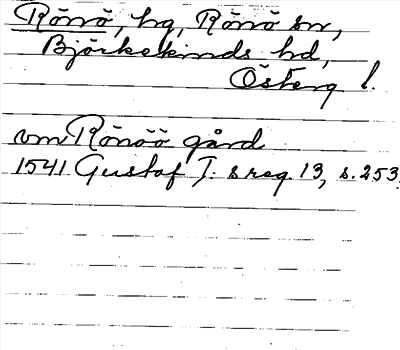 Rönö, hg, Rönö sn,
Björkekinds hd,
Österg l.
um Rönöö gård
1541 Gustaf I:s reg. 13, s. 253.